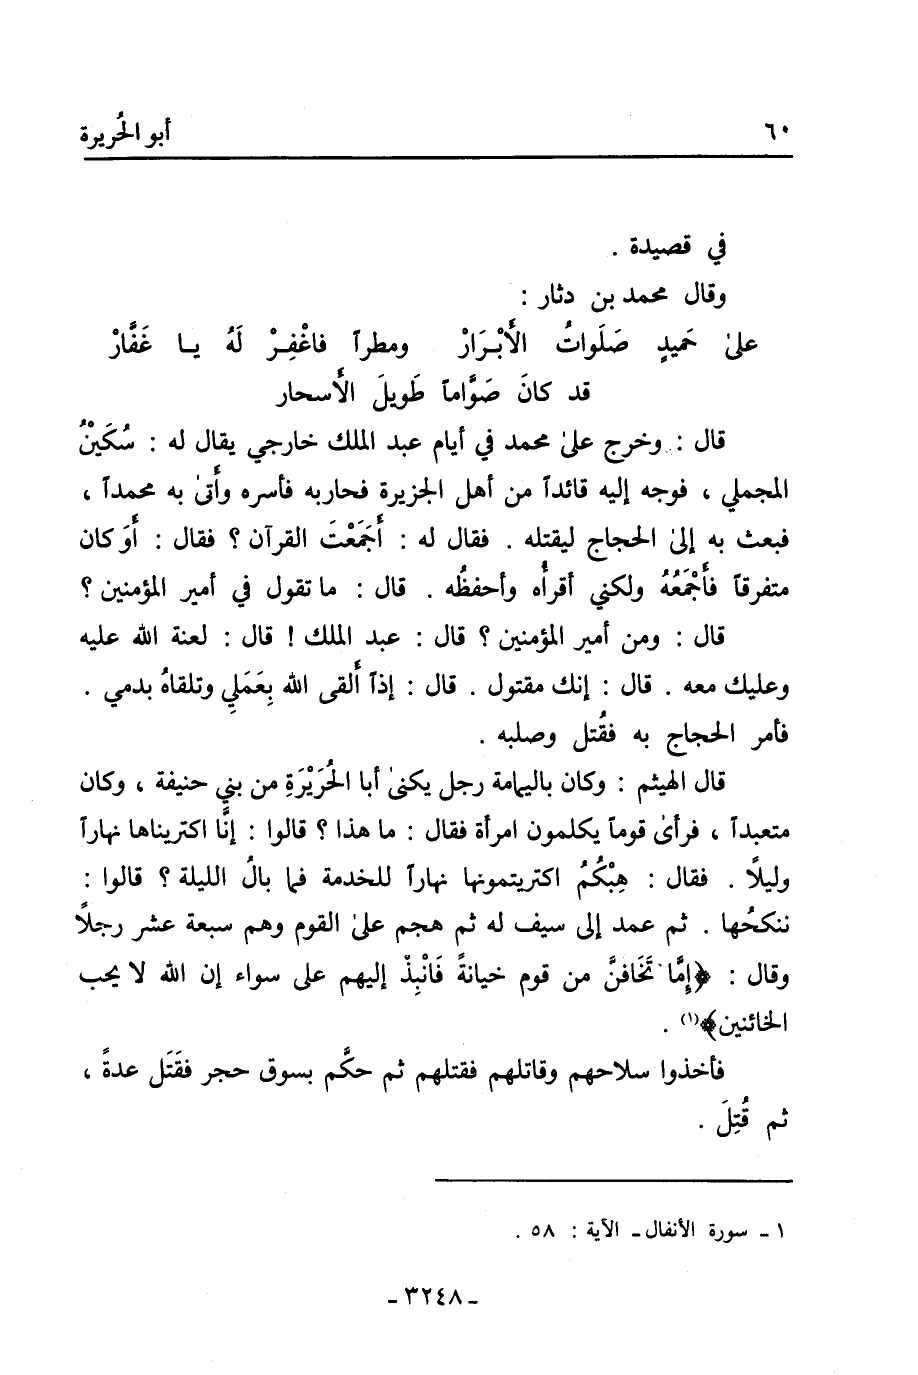 ٦٠ أبو الحُريرة
في قصيدة .
وقال محمد بن دثار :
علىٰ حَميدٍ صَلَواتُ الأَبْـرَارْ ومطراً فاغْفِـرْ لَهُ يـا غَفَّارْ
قد كانَ صَوَّاماً طَويلَ الأَسحار
قال : وخرج علىٰ محمد في أيام عبد الملك خارجي يقال له : سُكَيْنُ
المجملي ، فوجه إليه قائداً من أهل الجزيرة فحاربه فأسره وأَتىٰ به محمداً ،
فبعث به إلىٰ الحجاج ليقتله . فقال له : أَجَمَعْتَ القرآن ؟ فقال : أَوَ كان
متفرقاً فأَجْمَعُهُ ولكني أقرأُه وأحفظُه . قال : ما تقول في أمير المؤمنين ؟
قال : ومن أمير المؤمنين ؟ قال : عبد الملك ! قال : لعنة الله عليه
وعليك معه . قال : إنك مقتول . قال : إذاً أَلقى الله بِعَمَلي وتلقاهُ بدمي .
فأمر الحجاج به فقُتل وصلبه .
قال الهيثم : وكان باليمامة رجل يكنىٰ أبا الحُرَيْرَةِ من بني حنيفة ، وكان
متعبداً ، فرأىٰ قوماً يكلمون امرأة فقال : ما هذا ؟ قالوا : إنَّا اكتريناها نهاراً
وليلًا . فقال : هِبْكُمُ اكتريتمونها نهاراً للخدمة فما بالُ الليلة ؟ قالوا :
ننكحُها . ثم عمد إلى سيف له ثم هجم علىٰ القوم وهم سبعة عشر رجلًا
وقال : ﴿إِمَّا تَخَافنَّ من قوم خيانةً فَانْبِذْ إليهم على سواء إن الله لا يحب
الخائنين﴾(١) .
فأخذوا سلاحهم وقاتلهم فقتلهم ثم حكَّم بسوق حجر فقَتَل عدةً ،
ثم قُتِلَ .
١ - سورة الأنفال - الآية : ٥٨ .
- ٣٢٤٨ -